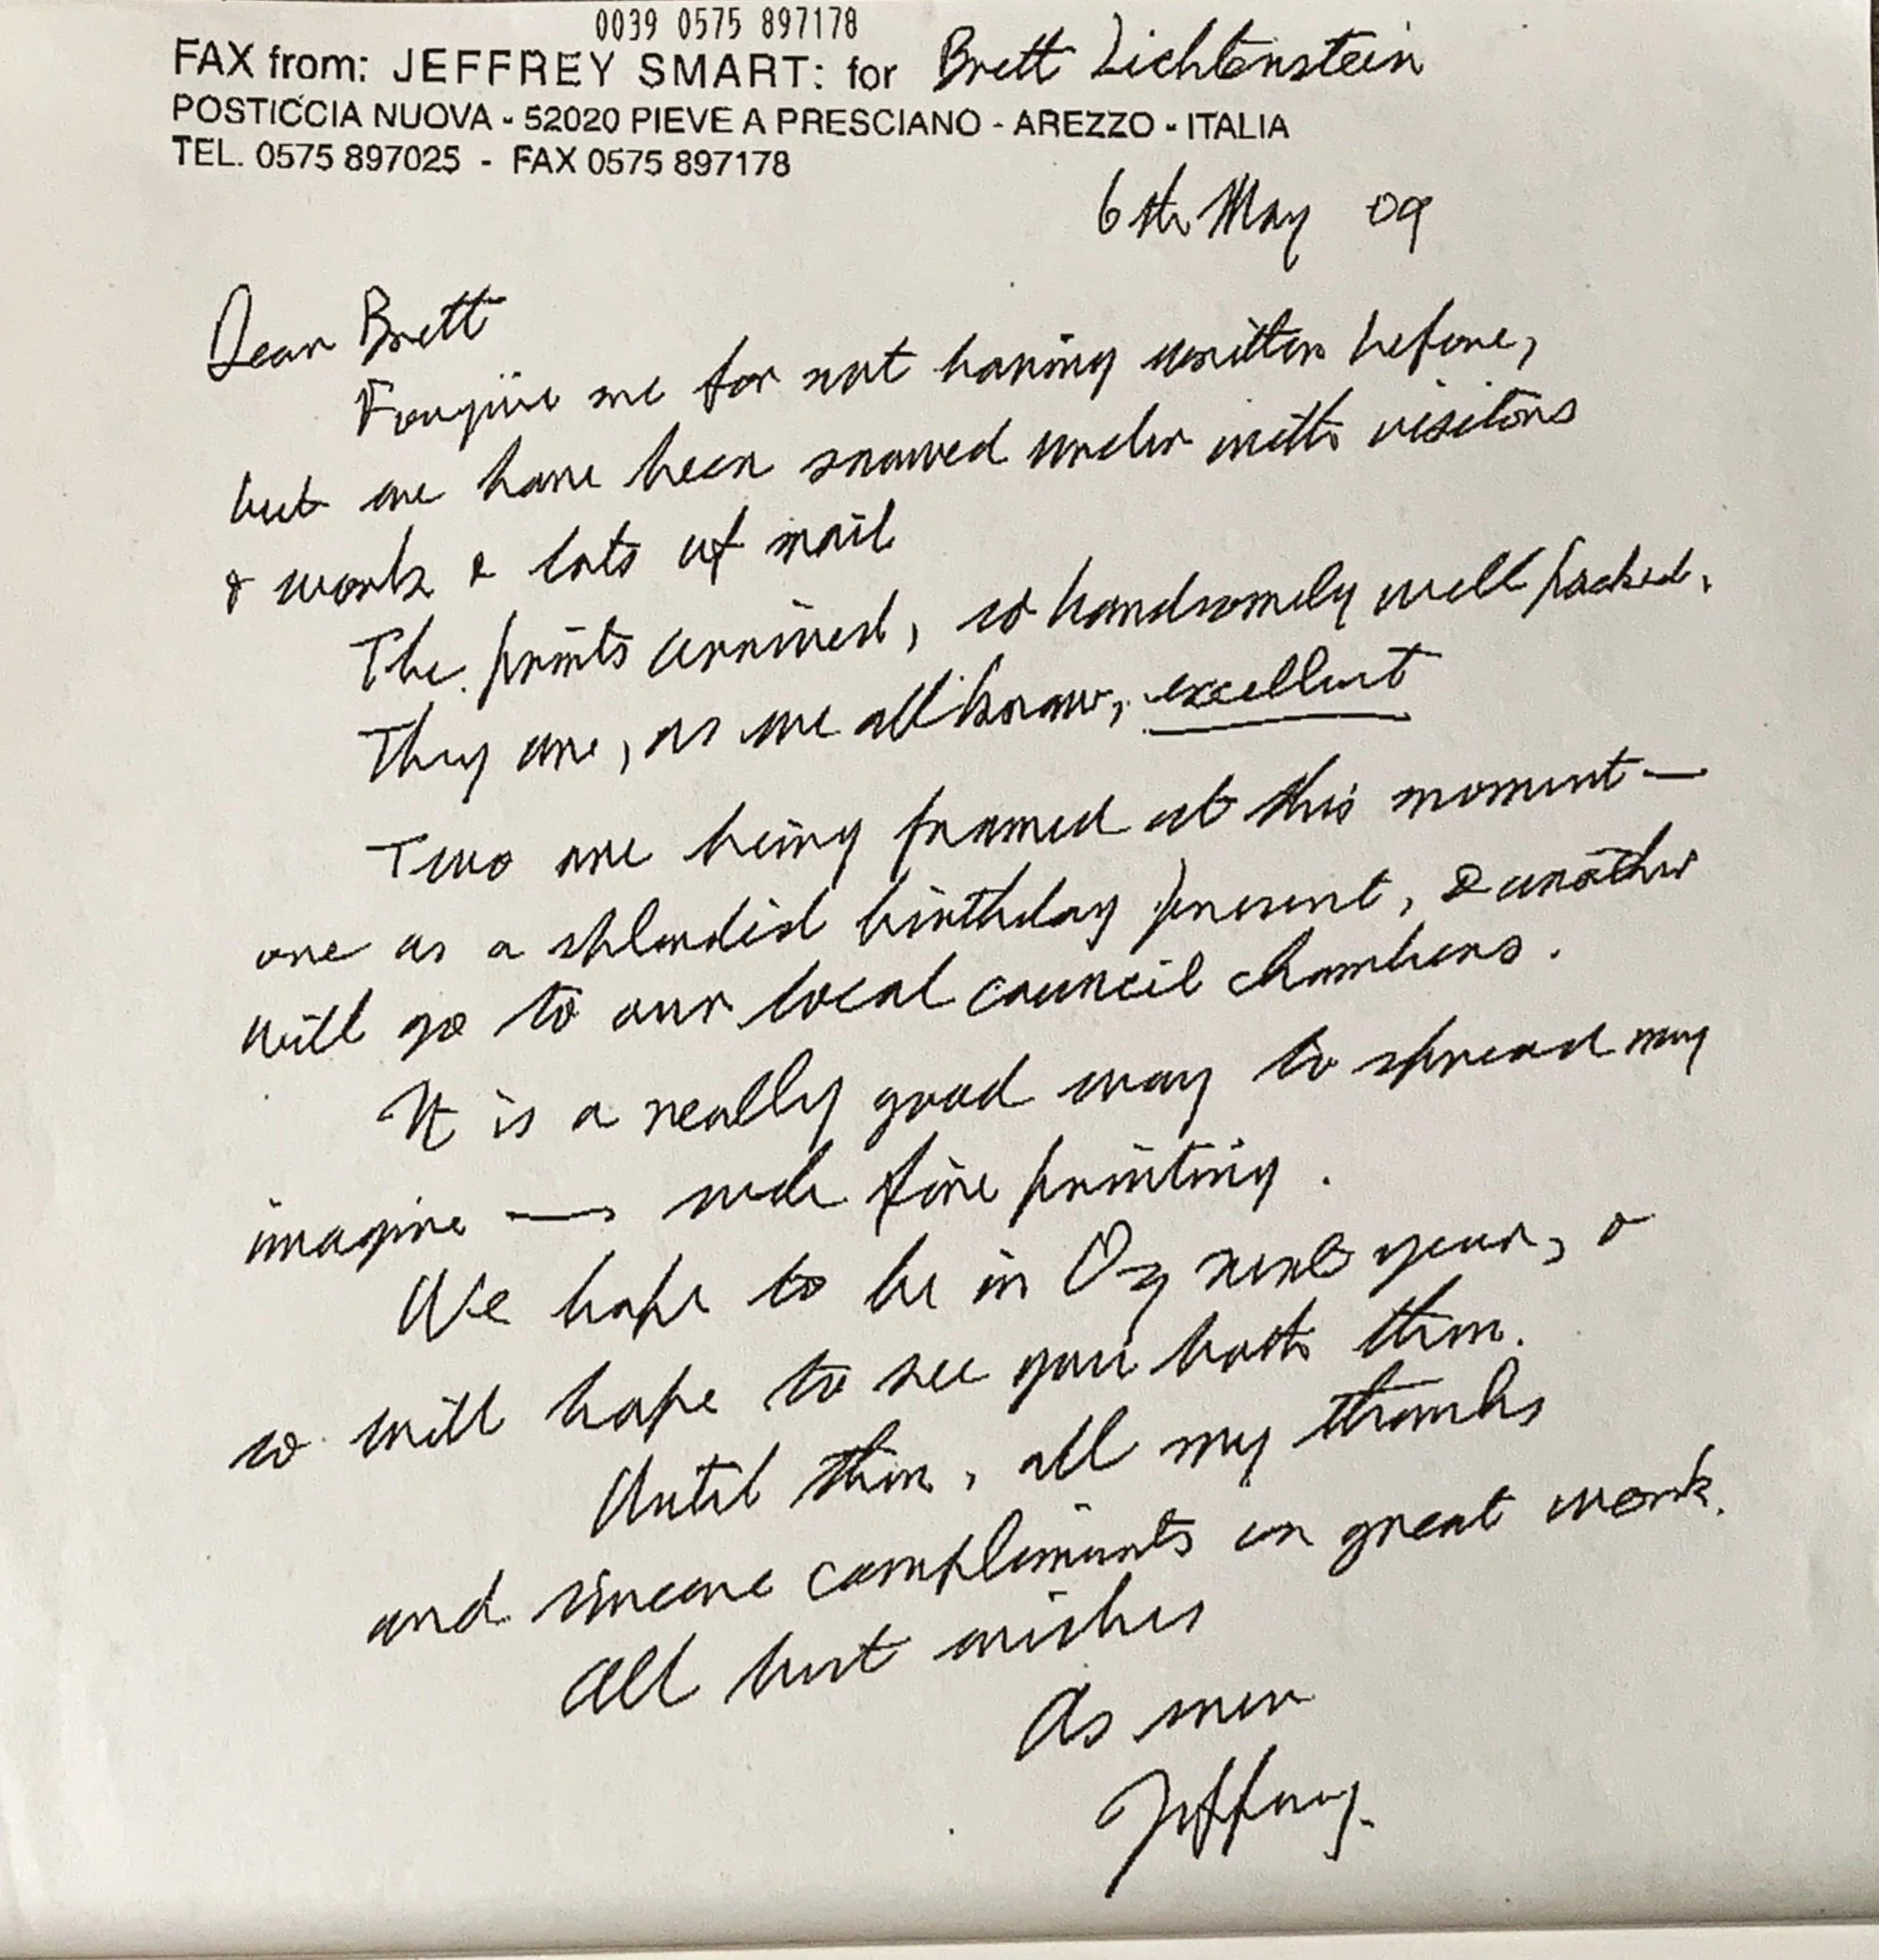 0039 0575 897178
FAX from: JEFFREY SMART: for Brett Lichtenstein
POSTICCIA NUOVA - 52020 PIEVE A PRESCIANO - AREZZO - ITALIA
TEL. 0575 897025 - FAX 0575 897178
6th May 09
Dear Brett
Forgive me for not having written before,
but we have been snowed under with visitors
& work & lots of mail
The prints arrived, so handsomely well packed.
They are, as we all know, excellent
Two are being framed at this moment —
one as a splendid birthday present, & another
will go to our local council chambers.
It is a really good way to spread my
imagine — such fine printing.
We hope to be in Oz next year, &
so will hope to see you both then.
Until then, all my thanks
and sincere compliments on great work.
All best wishes
As ever
Jeffrey.